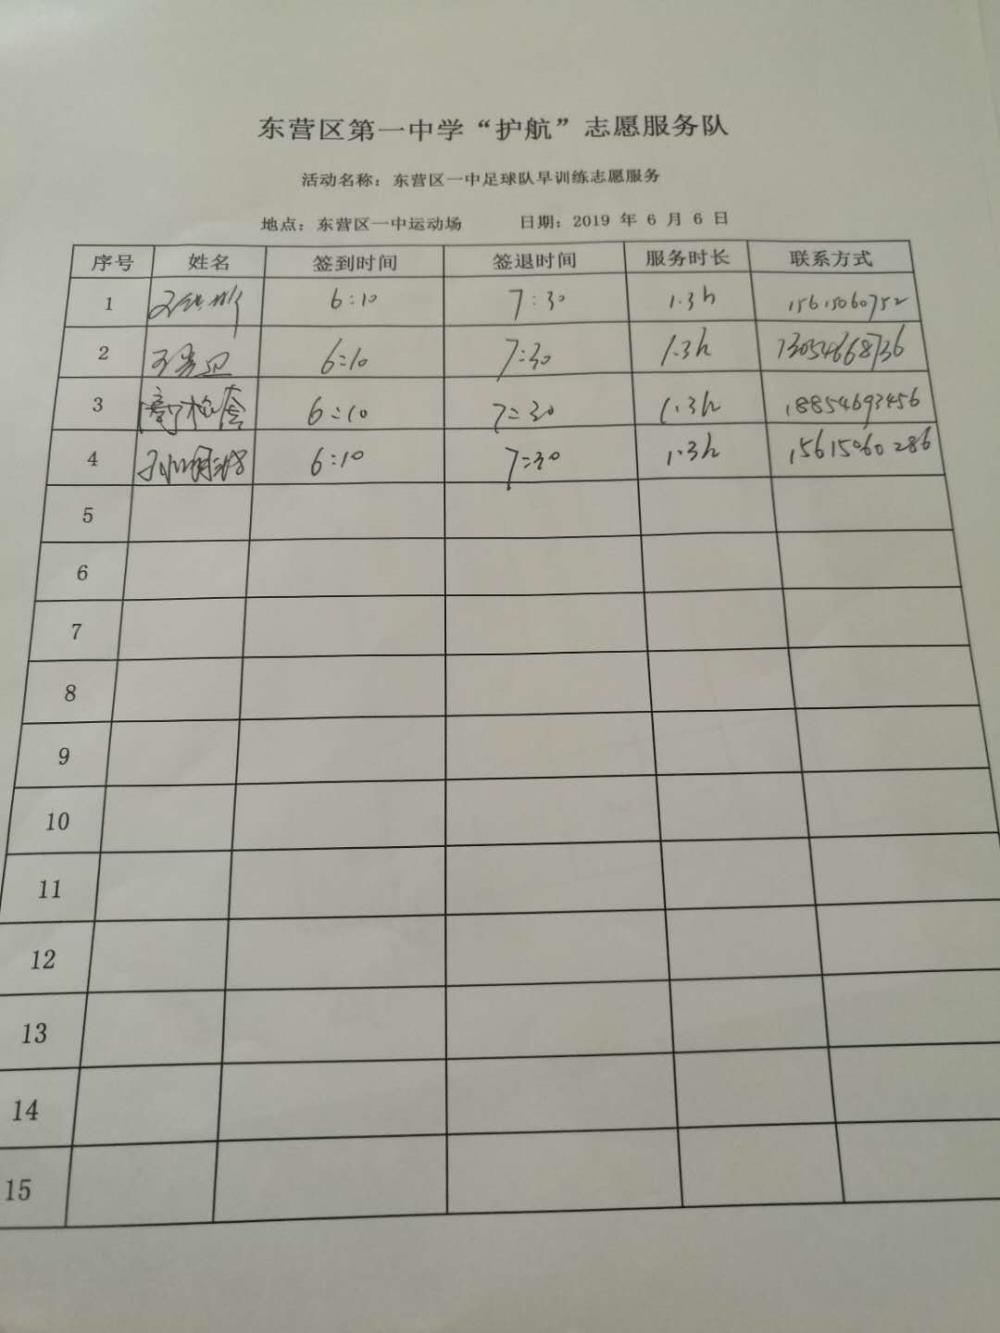 东营区第一中学“护航”志愿服务队
活动名称：东营区一中足球队早训练志愿服务
地点：东营区一中运动场 日期：2019 年 6 月 6 日
序号 姓名 签到时间 签退时间 服务时长 联系方式
1 6:10 7:30 1.3h 15615060752
2 6:10 7:30 1.3h 13054668736
3 6:10 7:30 1.3h 18854693456
4 6:10 7:30 1.3h 15615060286
5
6
7
8
9
10
11
12
13
14
15